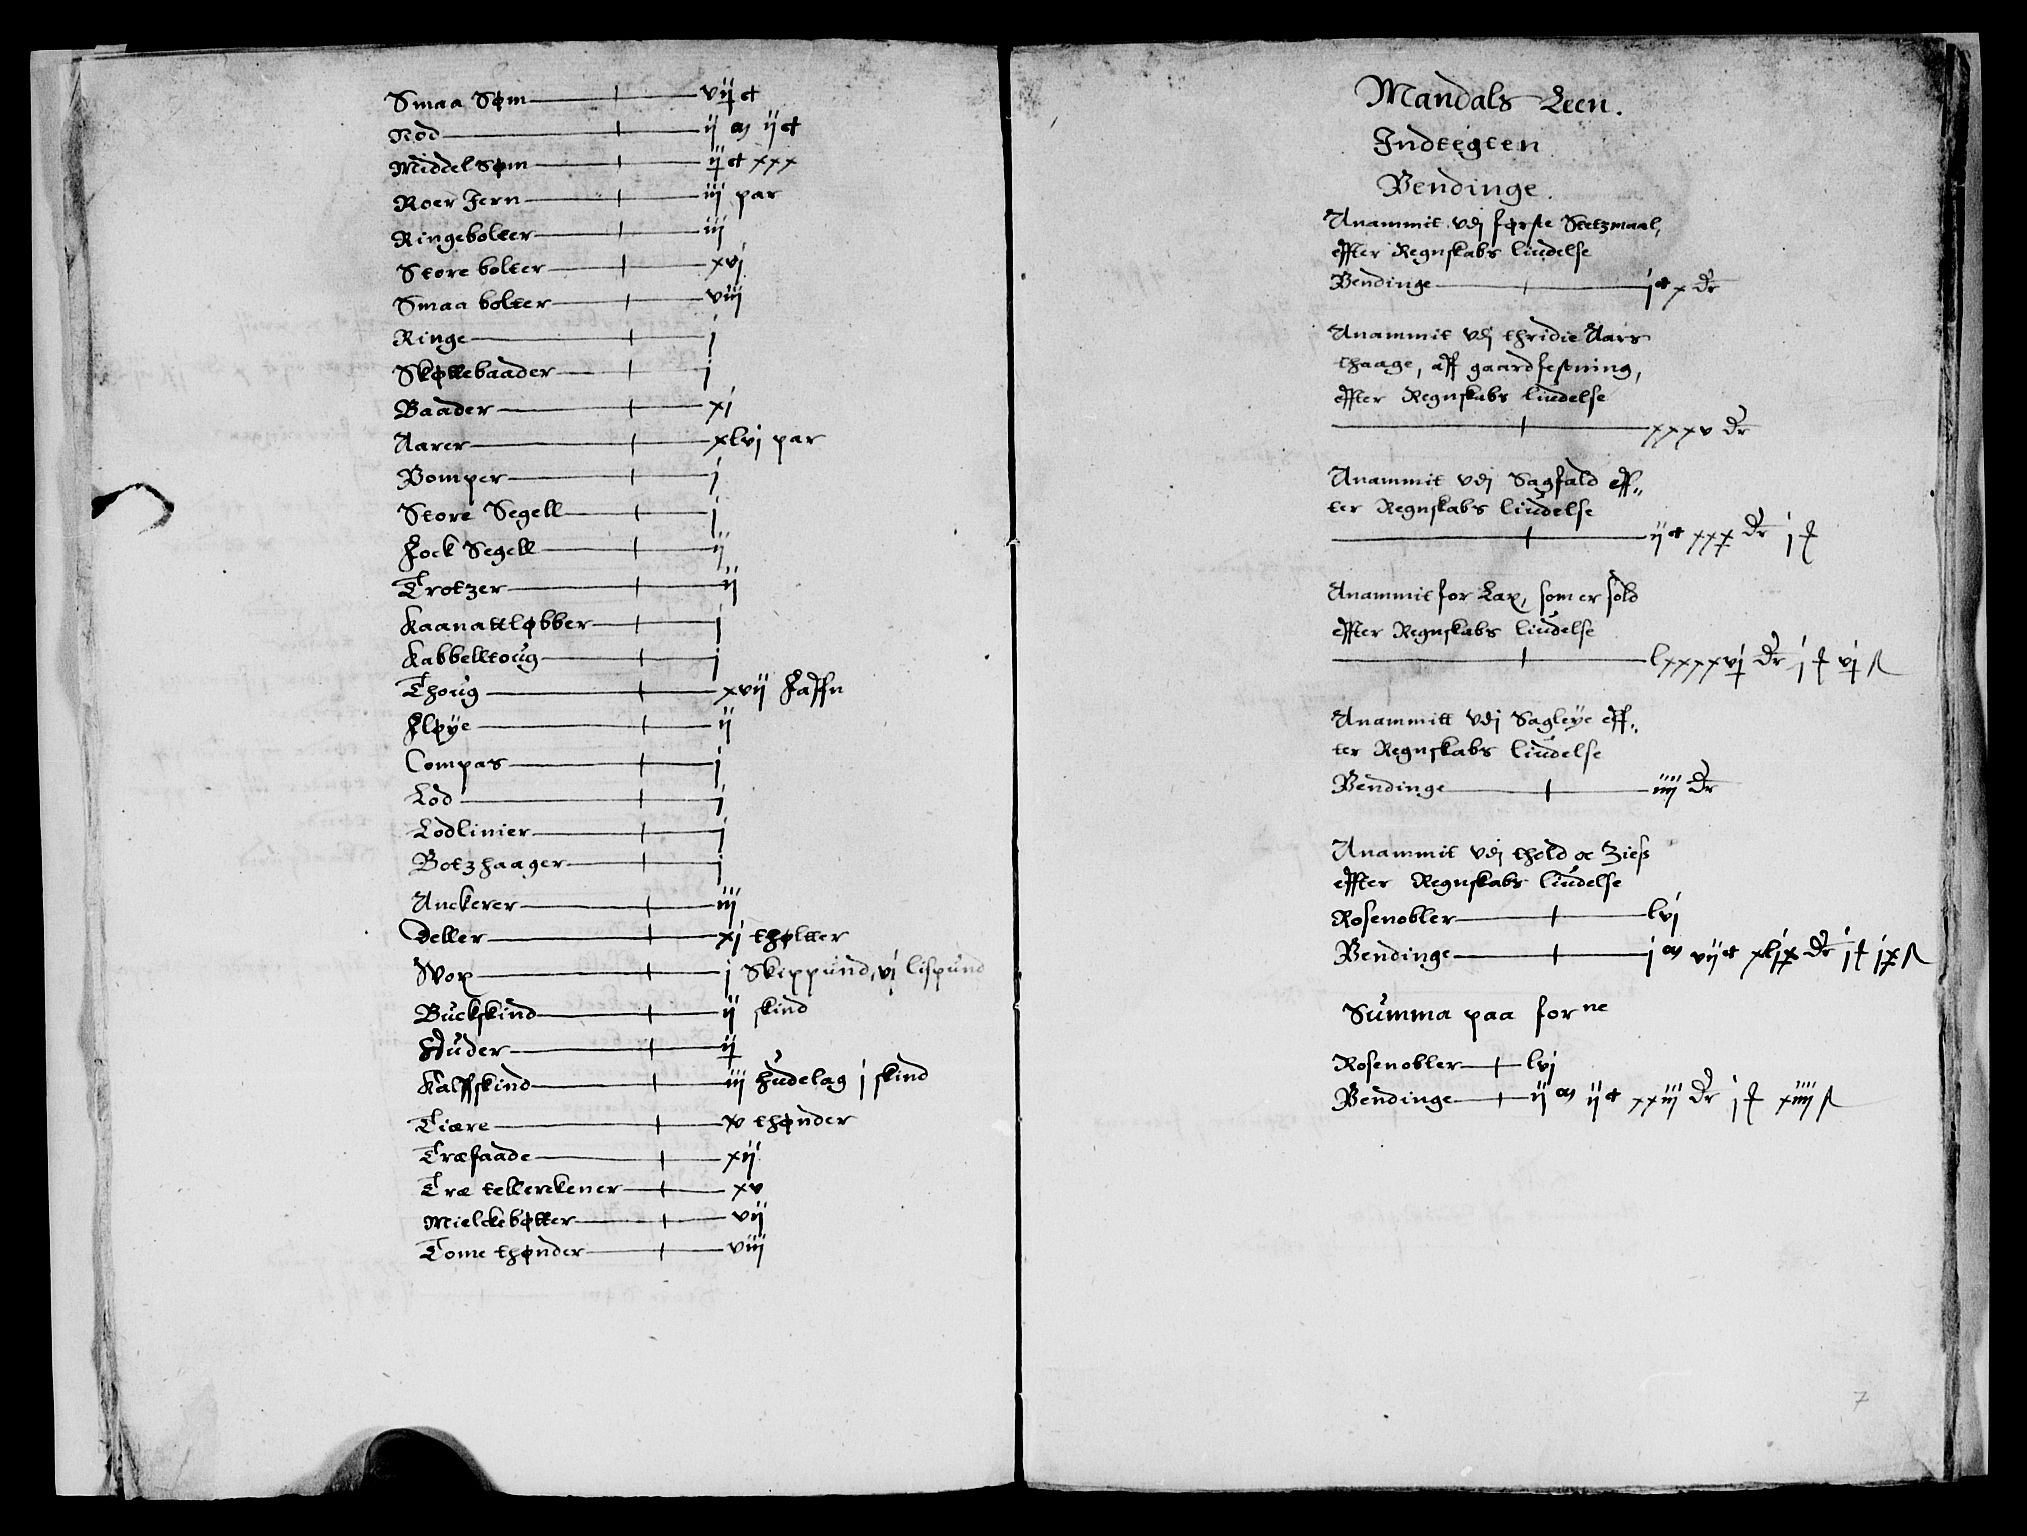 Smaa Søm — vij ct
Nod — ij m ij ct
Middel Søm — ij ct xxx
Roer Jern — iij par
Ringebolter — iij
Store bolter — xvj
Smaa bolter — viij
Ringe — j
Skøttebaader — j
Baader — xi
Aarer — xlvj par
Pomper — j
Store Segell — j
Fock Segell — ij
Trotzer — ij
Kaanattløbber — j
Kabbelltoug — j
Thoug — xvij Faffn
Fløye — ij
Compas — j
Lod — j
Lodlinier — j
Botzhaager — j
Anckerer — iij
Deller — xj thøltter
Vox — j Skippund, vj lispund
Buckskind — ij skind
Huder — ij
Kalffskind — iij Hudelag j skind
Tiære — xv thønder
Træfaade — xij
Træ tellerckener — xv
Mielckebøtter — vij
Tome thønder — viij
Mandals Leen.
Indtegten
Pendinge.
Anammit vdj første Stetzmaal,
effter Regnskabs liudelse
Pendinge — j ct x Dr
Anammit vdj thridie Aars
thaage, aff gaardfestning,
effter Regnskabs liudelse
— xxxv Dr
Anammit vdj Sagfald eff-
ter Regnskabs liudelse
— ij ct xxx Dr j
Anammit for Lax, som er sold
effter Regnskabs liudelse
— lxxxxvj Dr j vj ß
Anammitt vdj Sagleye eff-
ter Regnskabs liudelse
Pendinge — iiij Dr
Anammit vdj thold oc Zieß
effter Regnskabs liudelse
Rosenobler — lvj
Pendinge — j m vij ct xlix Dr j ix ß
Summa paa forne
Rosenobler — lvj
Pendinge — ij m ij ct xxiij Dr j xiiij ß
7